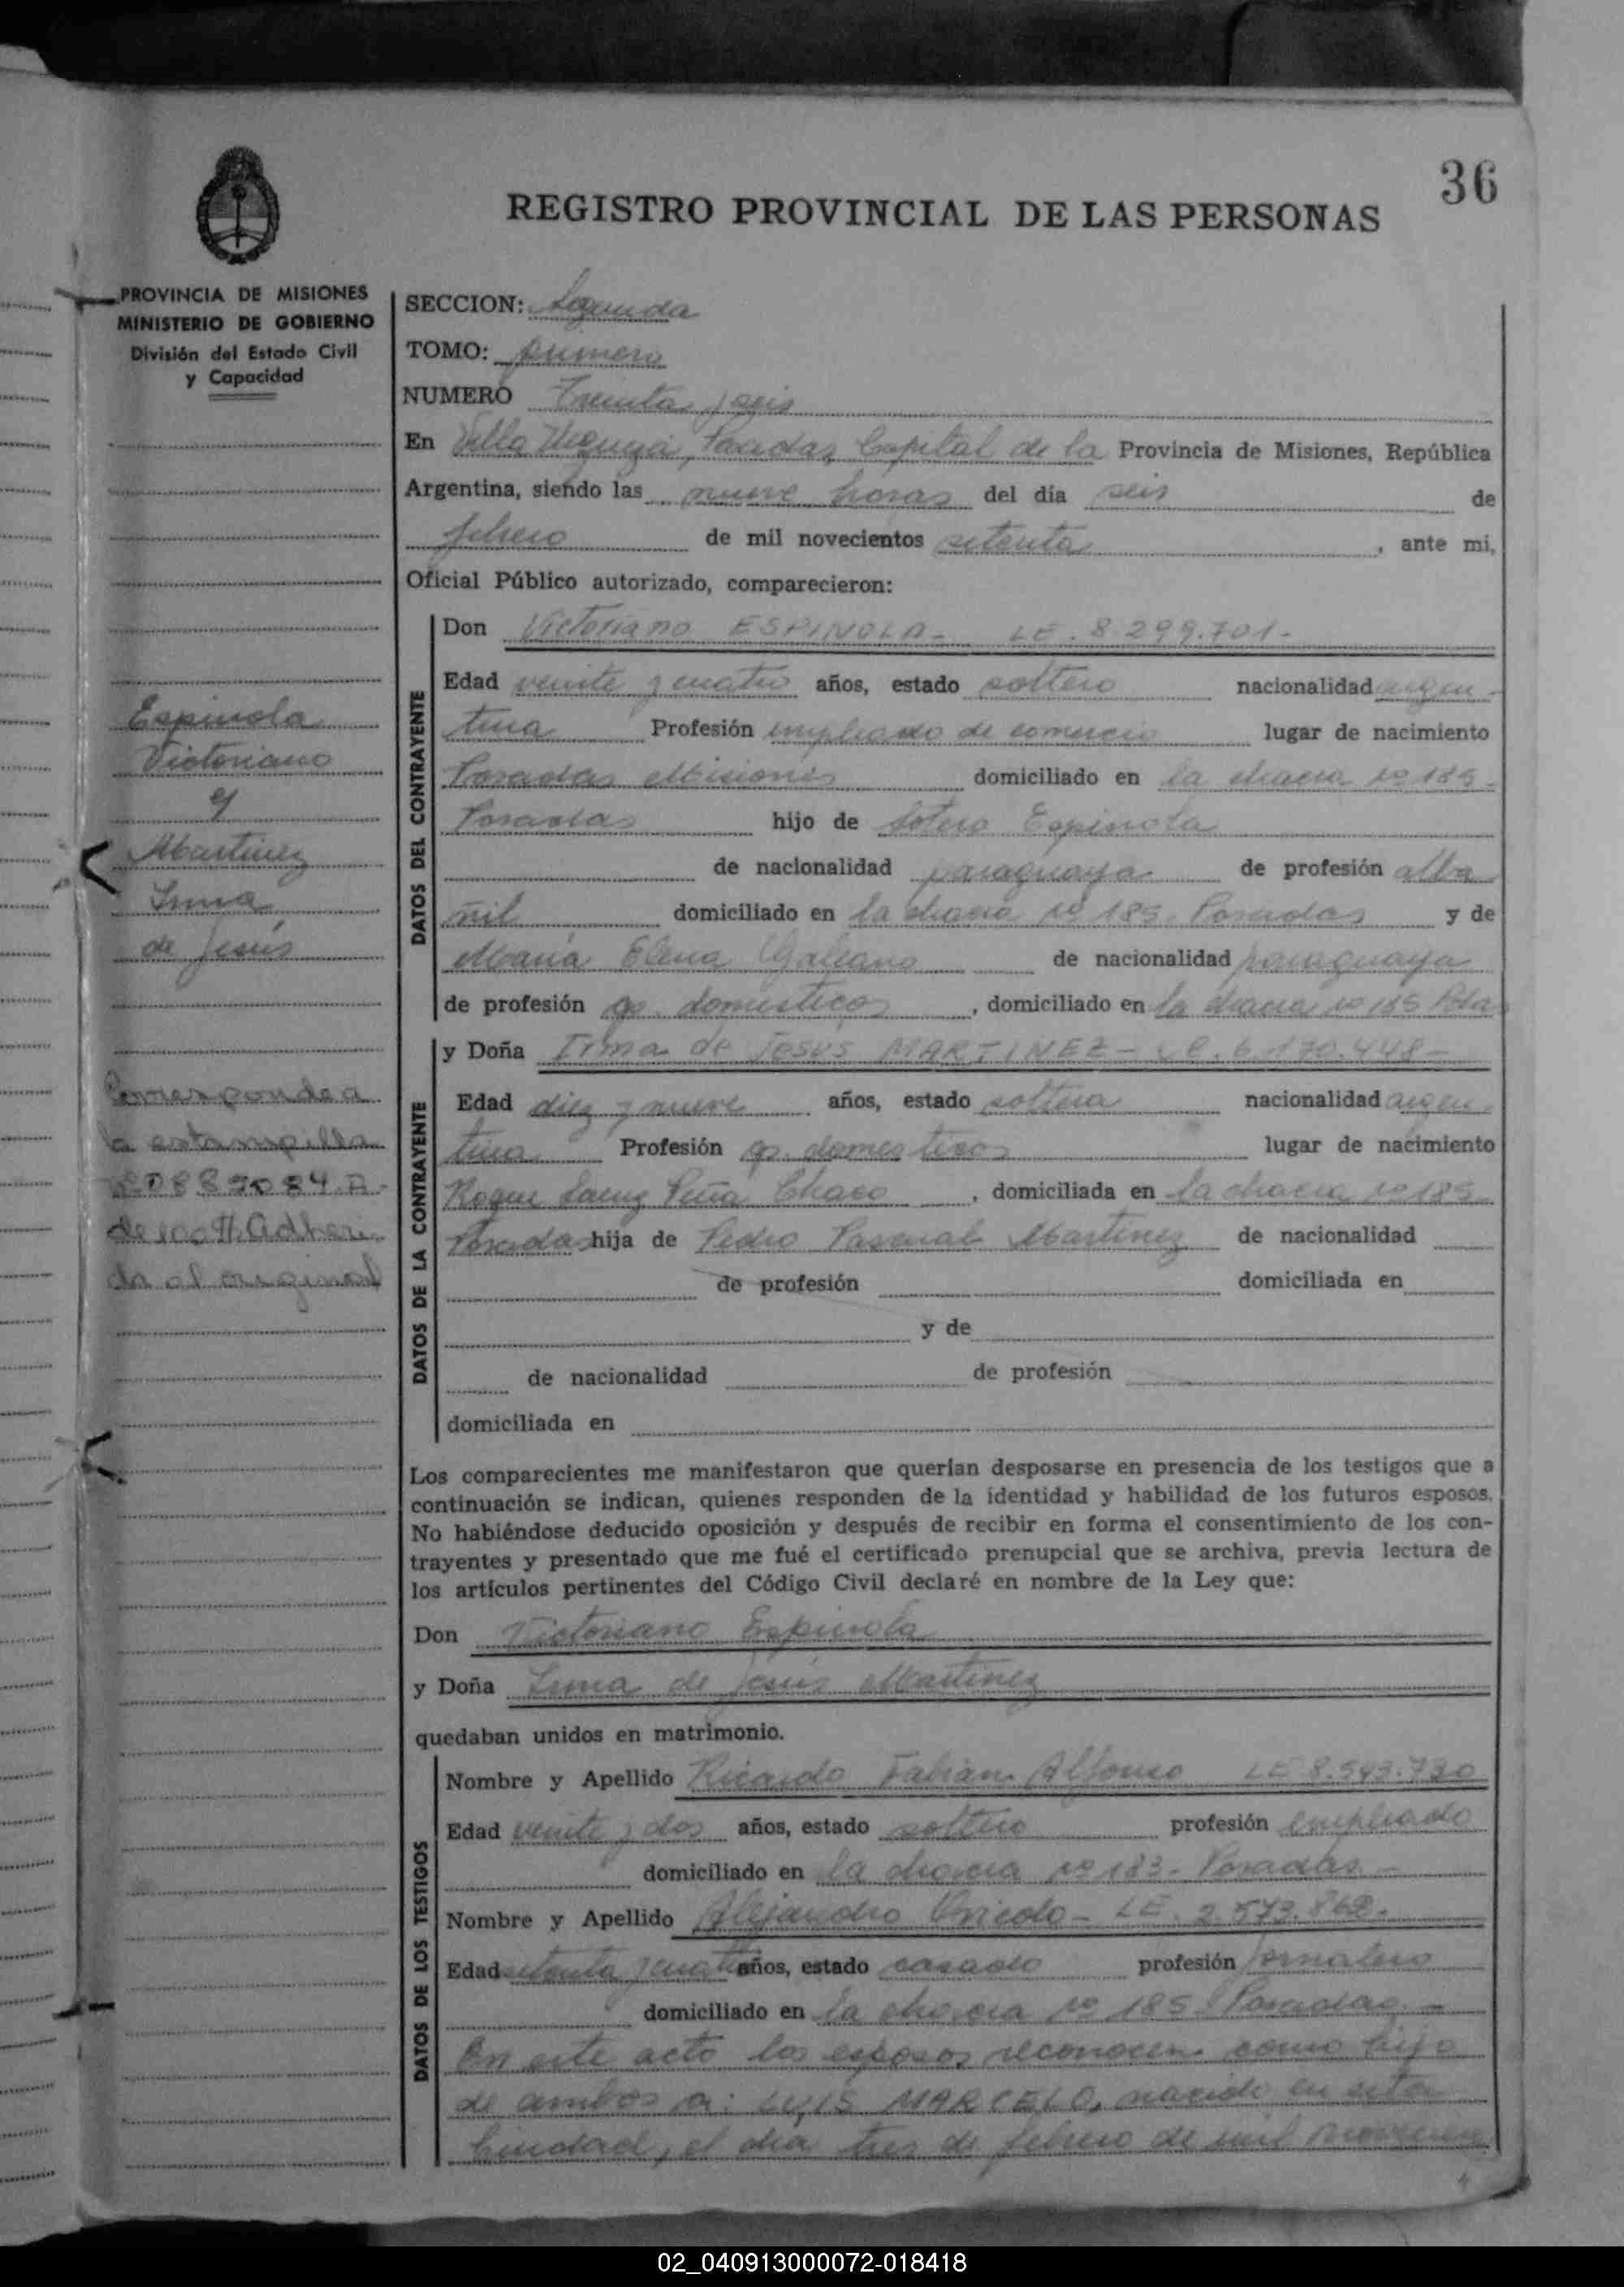 36
REGISTRO PROVINCIAL DE LAS PERSONAS
PROVINCIA DE MISIONES
MINISTERIO DE GOBIERNO
División del Estado Civil
y Capacidad
Espinola
Victoriano
y
Martinez
Irma
de Jesús
Corresponde a
la estampilla
de 100 Adheri
da al original
SECCION: Segunda
TOMO: primero
NUMERO Treinta y seis
En Villa Urquiza, Posadas, Capital de la Provincia de Misiones, República
Argentina, siendo las nueve horas del día seis de
febrero de mil novecientos setenta, ante mi,
Oficial Público autorizado, comparecieron:
DATOS DEL CONTRAYENTE
Don Victoriano ESPINOLA- LE. 8.299.701-
Edad veinte y cuatro años, estado soltero nacionalidad argen-
tina Profesión empleado de comercio lugar de nacimiento
Posadas Misiones domiciliado en la chacra nº 185-
Posadas hijo de Sotero Espinola
de nacionalidad paraguaya de profesión alba
ñil domiciliado en la chacra nº 185. Posadas y de
María Elena Galeano de nacionalidad paraguaya
de profesión q. domesticos, domiciliado en la chacra nº 185 Pdas
DATOS DE LA CONTRAYENTE
y Doña Irma de JESUS MARTINEZ- 6.170.448-
Edad diez y nueve años, estado soltera nacionalidad argen-
tina Profesión q. domesticos lugar de nacimiento
Roque Saenz Peña Chaco, domiciliada en la chacra nº 185
Posadas hija de Pedro Pascual Martinez de nacionalidad
de profesión domiciliada en
y de
de nacionalidad de profesión
domiciliada en
Los comparecientes me manifestaron que querían desposarse en presencia de los testigos que a
continuación se indican, quienes responden de la identidad y habilidad de los futuros esposos.
No habiéndose deducido oposición y después de recibir en forma el consentimiento de los con-
trayentes y presentado que me fué el certificado prenupcial que se archiva, previa lectura de
los artículos pertinentes del Código Civil declaré en nombre de la Ley que:
Don Victoriano Espinola
y Doña Irma de Jesús Martinez
quedaban unidos en matrimonio.
DATOS DE LOS TESTIGOS
Nombre y Apellido Ricardo Fabian Alfonso LE 8.543.730
Edad veinte y dos años, estado soltero profesión empleado
domiciliado en la chacra nº 183- Posadas.-
Nombre y Apellido Alejandro - LE. 2.573.862-
Edad setenta y cuatro años, estado casado profesión Jornalero
domiciliado en la chacra nº 185 Posadas.-
En este acto los esposos reconocen como hijo
de ambos a: LUIS MARCELO, nacido en esta
Ciudad, el día tres de febrero de mil novecien
02_040913000072-018418